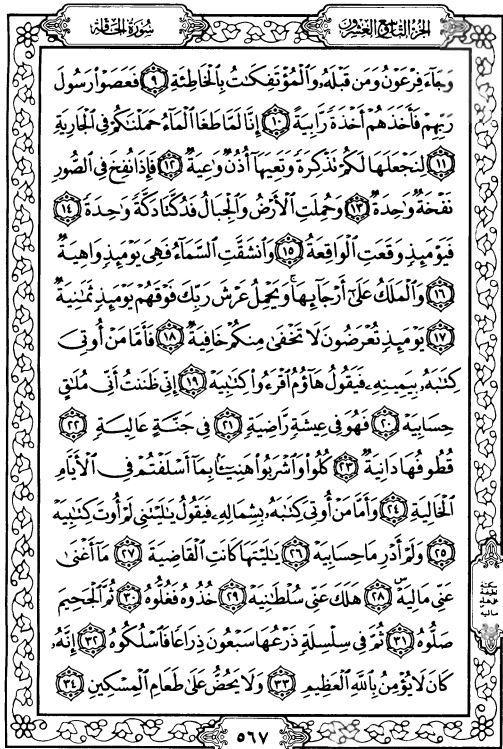 سُورَةُ الْحَاقَّةِ
الجُزْءُ التَّاسِعُ وَالعِشْرُونَ
وَجَآءَ فِرْعَوْنُ وَمَن قَبْلَهُۥ وَٱلْمُؤْتَفِكَـٰتُ بِٱلْخَاطِئَةِ ٩ فَعَصَوْا۟ رَسُولَ
رَبِّهِمْ فَأَخَذَهُمْ أَخْذَةً رَّابِيَةً ١٠ إِنَّا لَمَّا طَغَا ٱلْمَآءُ حَمَلْنَـٰكُمْ فِى ٱلْجَارِيَةِ
١١ لِنَجْعَلَهَا لَكُمْ تَذْكِرَةً وَتَعِيَهَآ أُذُنٌ وَٰعِيَةٌ ١٢ فَإِذَا نُفِخَ فِى ٱلصُّورِ
نَفْخَةٌ وَٰحِدَةٌ ١٣ وَحُمِلَتِ ٱلْأَرْضُ وَٱلْجِبَالُ فَدُكَّتَا دَكَّةً وَٰحِدَةً ١٤
فَيَوْمَئِذٍ وَقَعَتِ ٱلْوَاقِعَةُ ١٥ وَٱنشَقَّتِ ٱلسَّمَآءُ فَهِىَ يَوْمَئِذٍ وَاهِيَةٌ
١٦ وَٱلْمَلَكُ عَلَىٰٓ أَرْجَآئِهَا ۚ وَيَحْمِلُ عَرْشَ رَبِّكَ فَوْقَهُمْ يَوْمَئِذٍ ثَمَـٰنِيَةٌ
١٧ يَوْمَئِذٍ تُعْرَضُونَ لَا تَخْفَىٰ مِنكُمْ خَافِيَةٌ ١٨ فَأَمَّا مَنْ أُوتِىَ
كِتَـٰبَهُۥ بِيَمِينِهِۦ فَيَقُولُ هَآؤُمُ ٱقْرَءُوا۟ كِتَـٰبِيَهْ ١٩ إِنِّى ظَنَنتُ أَنِّى مُلَـٰقٍ
حِسَابِيَهْ ٢٠ فَهُوَ فِى عِيشَةٍ رَّاضِيَةٍ ٢١ فِى جَنَّةٍ عَالِيَةٍ ٢٢
قُطُوفُهَا دَانِيَةٌ ٢٣ كُلُوا۟ وَٱشْرَبُوا۟ هَنِيٓـًٔۢا بِمَآ أَسْلَفْتُمْ فِى ٱلْأَيَّامِ
ٱلْخَالِيَةِ ٢٤ وَأَمَّا مَنْ أُوتِىَ كِتَـٰبَهُۥ بِشِمَالِهِۦ فَيَقُولُ يَـٰلَيْتَنِى لَمْ أُوتَ كِتَـٰبِيَهْ
٢٥ وَلَمْ أَدْرِ مَا حِسَابِيَهْ ٢٦ يَـٰلَيْتَهَا كَانَتِ ٱلْقَاضِيَةَ ٢٧ مَآ أَغْنَىٰ
عَنِّى مَالِيَهْ ۜ ٢٨ هَلَكَ عَنِّى سُلْطَـٰنِيَهْ ٢٩ خُذُوهُ فَغُلُّوهُ ٣٠ ثُمَّ ٱلْجَحِيمَ
صَلُّوهُ ٣١ ثُمَّ فِى سِلْسِلَةٍ ذَرْعُهَا سَبْعُونَ ذِرَاعًا فَٱسْلُكُوهُ ٣٢ إِنَّهُۥ
كَانَ لَا يُؤْمِنُ بِٱللَّهِ ٱلْعَظِيمِ ٣٣ وَلَا يَحُضُّ عَلَىٰ طَعَامِ ٱلْمِسْكِينِ ٣٤
ماليه
٥٦٧